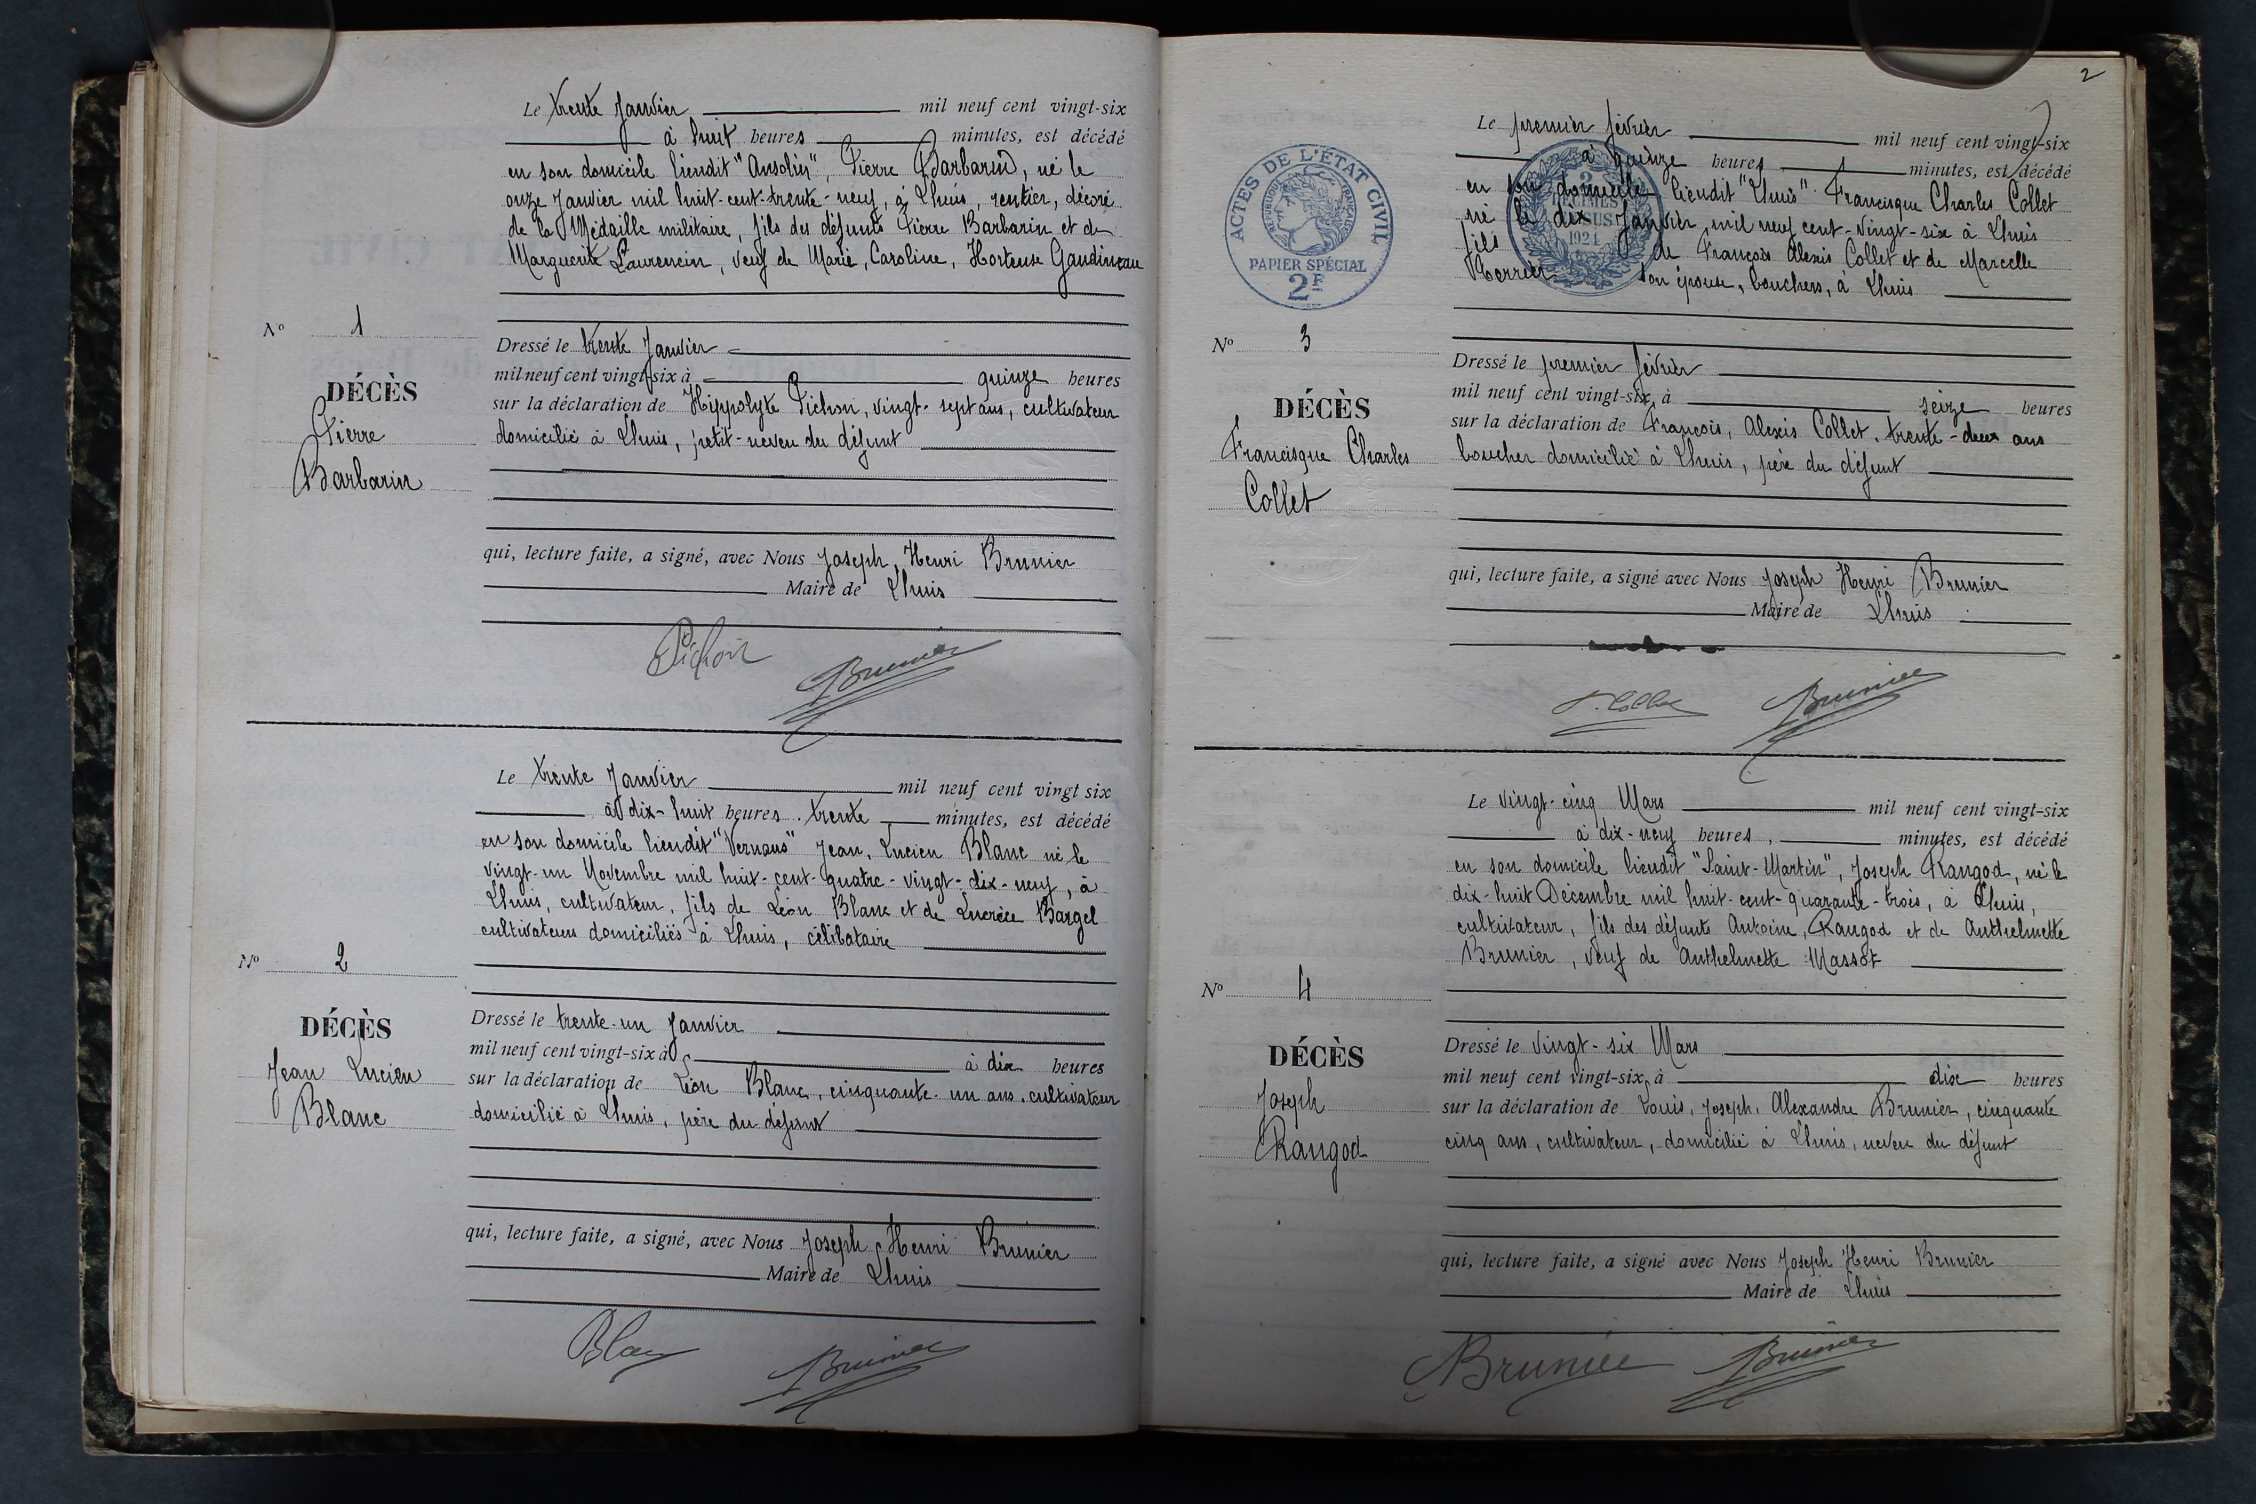 Le trente Janvier mil neuf cent vingt-six
à huit heures minutes, est décédé
en son domicile lieudit "Ansolin", Pierre Barbarin, né le
onze Janvier mil huit-cent-trente-neuf, à Lhuis, rentier, décoré
de la Médaille militaire, fils des défunts Pierre Barbarin et de
Marguerite Laurencin, veuf de Marie, Caroline, Hortense Gaudineau
N° 1
DÉCÈS
Pierre
Barbarin
Dressé le trente Janvier
mil neuf cent vingt-six à quinze heures
sur la déclaration de Hippolyte Pichon, vingt-sept ans, cultivateur
domicilié à Lhuis, petit-neveu du défunt
qui, lecture faite, a signé, avec Nous Joseph, Henri Brunier
Maire de Lhuis
Pichon Brunier
Le trente Janvier mil neuf cent vingt six
à dix-huit heures trente minutes, est décédé
en son domicile lieudit "Vernans" Jean, Lucien Blanc né le
vingt-un Novembre mil huit-cent-quatre-vingt-dix-neuf, à
Lhuis, cultivateur, fils de Léon Blanc et de Lucrèce Bargel
cultivateurs domiciliés à Lhuis, célibataire
N° 2
DÉCÈS
Jean Lucien
Blanc
Dressé le trente-un Janvier
mil neuf cent vingt-six à à dix heures
sur la déclaration de Léon Blanc, cinquante-un ans, cultivateur
domicilié à Lhuis, père du défunt
qui, lecture faite, a signé, avec Nous Joseph Henri Brunier
Maire de Lhuis
Blanc Brunier
2
Le premier février mil neuf cent vingt-six
à quinze heures minutes, est décédé
en son domicile lieudit "Lhuis" Francisque Charles Collet
né le dix Janvier mil neuf cent-vingt-six à Lhuis
fils de François Alexis Collet et de Marcelle
son épouse, bouchers, à Lhuis
ACTES DE L'ÉTAT CIVIL
RÉPUBLIQUE FRANÇAISE
PAPIER SPÉCIAL
2F
2
DÉCIMES
EN SUS
1924
N° 3
DÉCÈS
Francisque Charles
Collet
Dressé le premier février
mil neuf cent vingt-six, à seize heures
sur la déclaration de François, Alexis Collet, trente-deux ans
boucher domicilié à Lhuis, père du défunt
qui, lecture faite, a signé avec Nous Joseph Henri Brunier
Maire de Lhuis
Collet Brunier
Le vingt-cinq Mars mil neuf cent vingt-six
à dix-neuf heures, minutes, est décédé
en son domicile lieudit "Saint-Martin", Joseph Rangod, né le
dix-huit Décembre mil huit-cent-quarante-trois, à Lhuis,
cultivateur, fils des défunts Antoine, Rangod et de Anthelmette
Brunier, veuf de Anthelmette Massot
N° 4
DÉCÈS
Joseph
Rangod
Dressé le vingt-six Mars
mil neuf cent vingt-six, à dix heures
sur la déclaration de Louis, Joseph, Alexandre Brunier, cinquante
cinq ans, cultivateur, domicilié à Lhuis, neveu du défunt
qui, lecture faite, a signé avec Nous Joseph Henri Brunier
Maire de Lhuis
Brunier Brunier